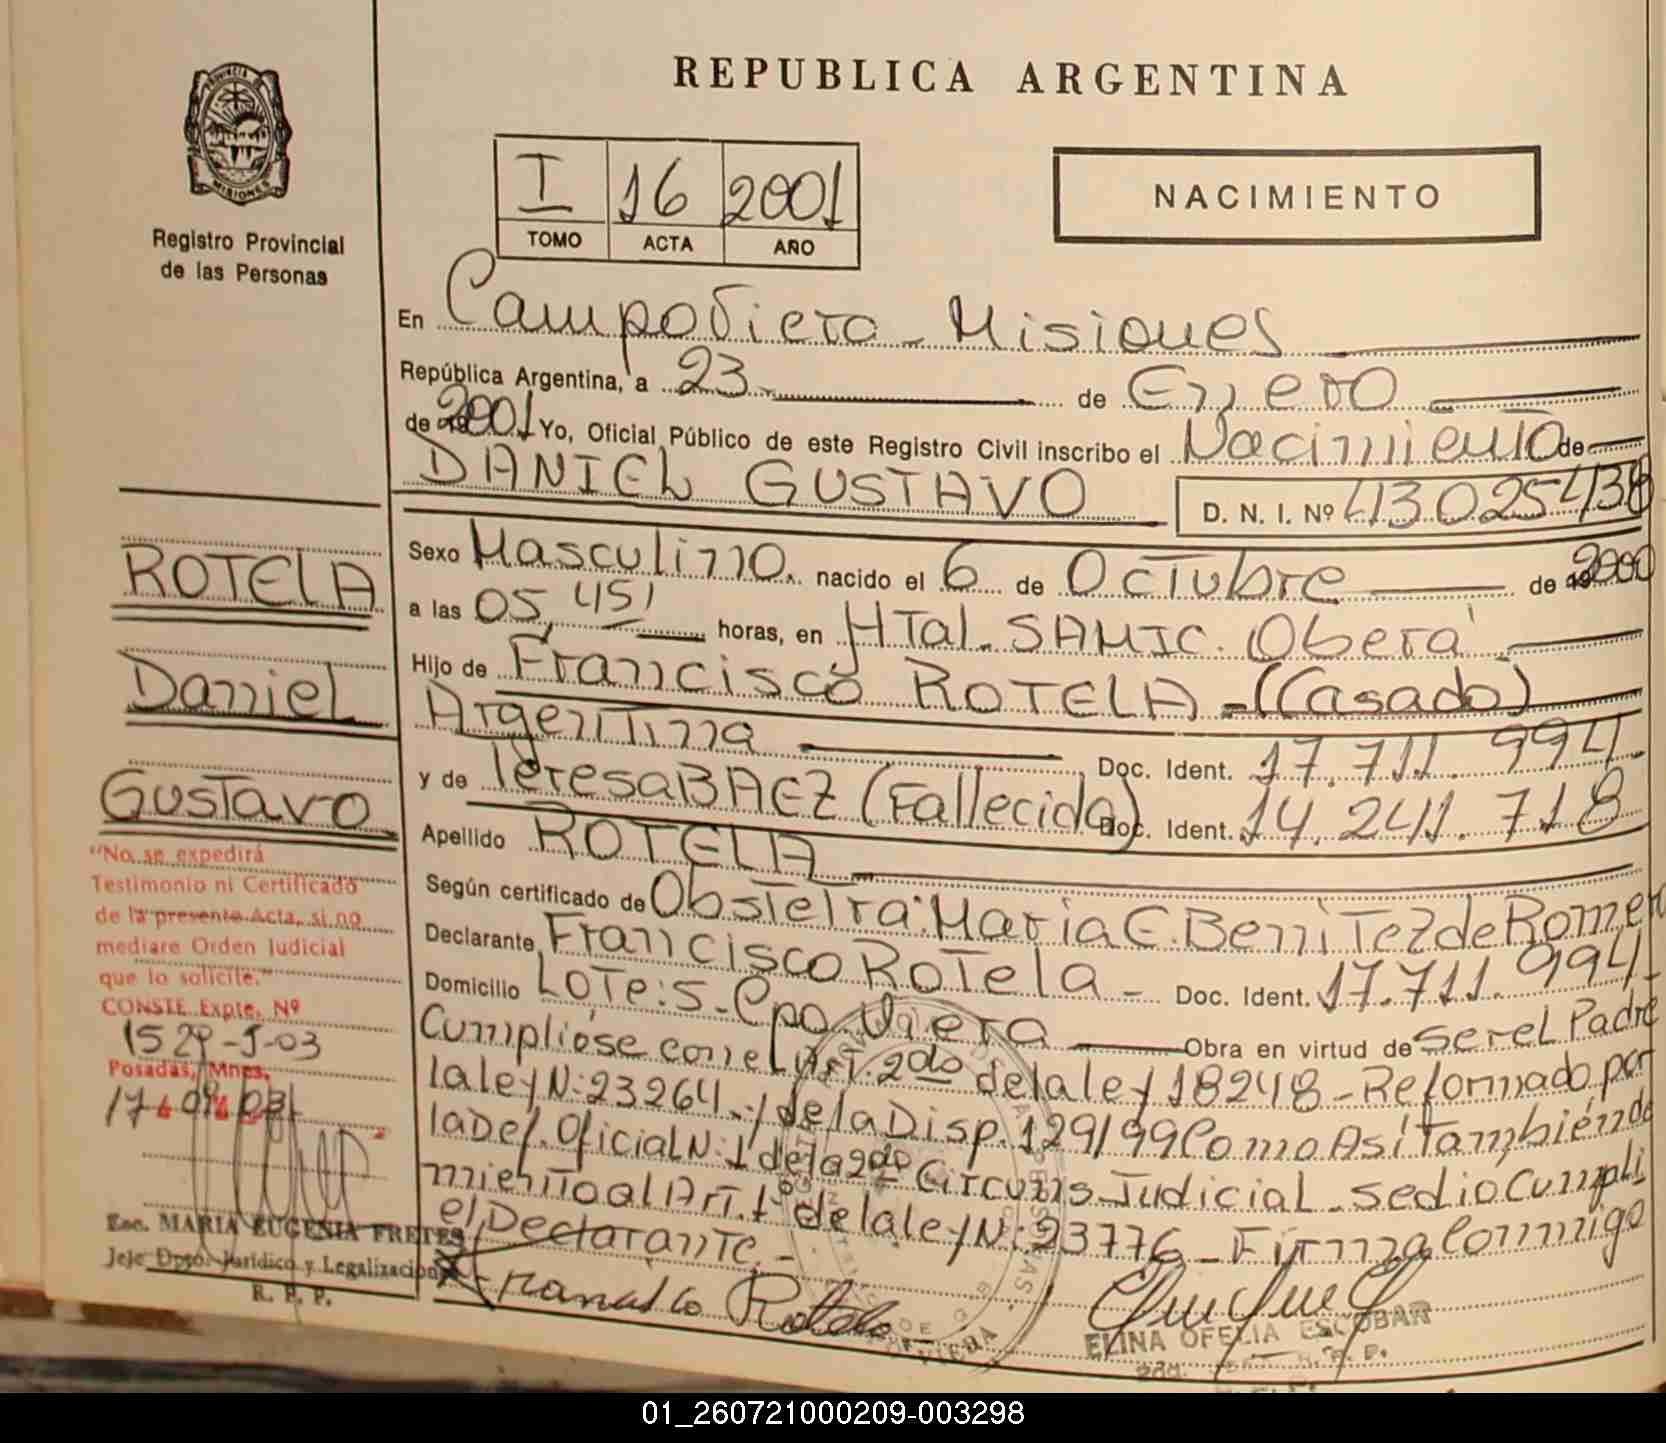 PROVINCIA DE
MISIONES
Registro Provincial
de las Personas
REPUBLICA ARGENTINA
I 16 2001
TOMO ACTA AÑO
NACIMIENTO
En Campo Viera - Misiones
República Argentina, a 23 de Enero
de 2001 Yo, Oficial Público de este Registro Civil inscribo el Nacimiento de
DANIEL GUSTAVO D. N. I. Nº 43025438
Sexo Masculino. nacido el 6 de Octubre de 2000
a las 05,45' horas, en HTal. SAMIC. Oberá
Hijo de Francisco ROTELA - (Casado)
Argentina Doc. Ident. 17.711.994
y de Teresa BAEZ (Fallecida) Doc. Ident. 14.241.718
Apellido ROTELA
Según certificado de Obstetra: Maria C. Benitez de Romero
Declarante Francisco Rotela - Doc. Ident. 17.711.994
Domicilio LOTE: 5 - Cpo. Viera Obra en virtud de ser el Padre
Cumplióse con el Art. 2do de la ley 18248 - Reformado por
la ley N: 23264 - y de la Disp. 129/99 Como Así También de
la Def. Oficial N: 1 de la 2do Circuns. Judicial - se dió Cumpli
miento al Art. 1º de la ley N: 23776 - Firma Conmigo
el Declarante. -
Francisco Rotela
ELINA OFELIA ESCOBAR
ROTELA
Daniel
Gustavo
"No se expedirá
Testimonio ni Certificado
de la presente Acta, si no
mediare Orden Judicial
que lo solicite."
CONSTE Expte. Nº
1529-J-03
Posadas, Mnes.
17 09 03
Esc. MARIA EUGENIA FRETES
Jefe Dpto. Jurídico y Legalizacion
R. P. P.
01_260721000209-003298